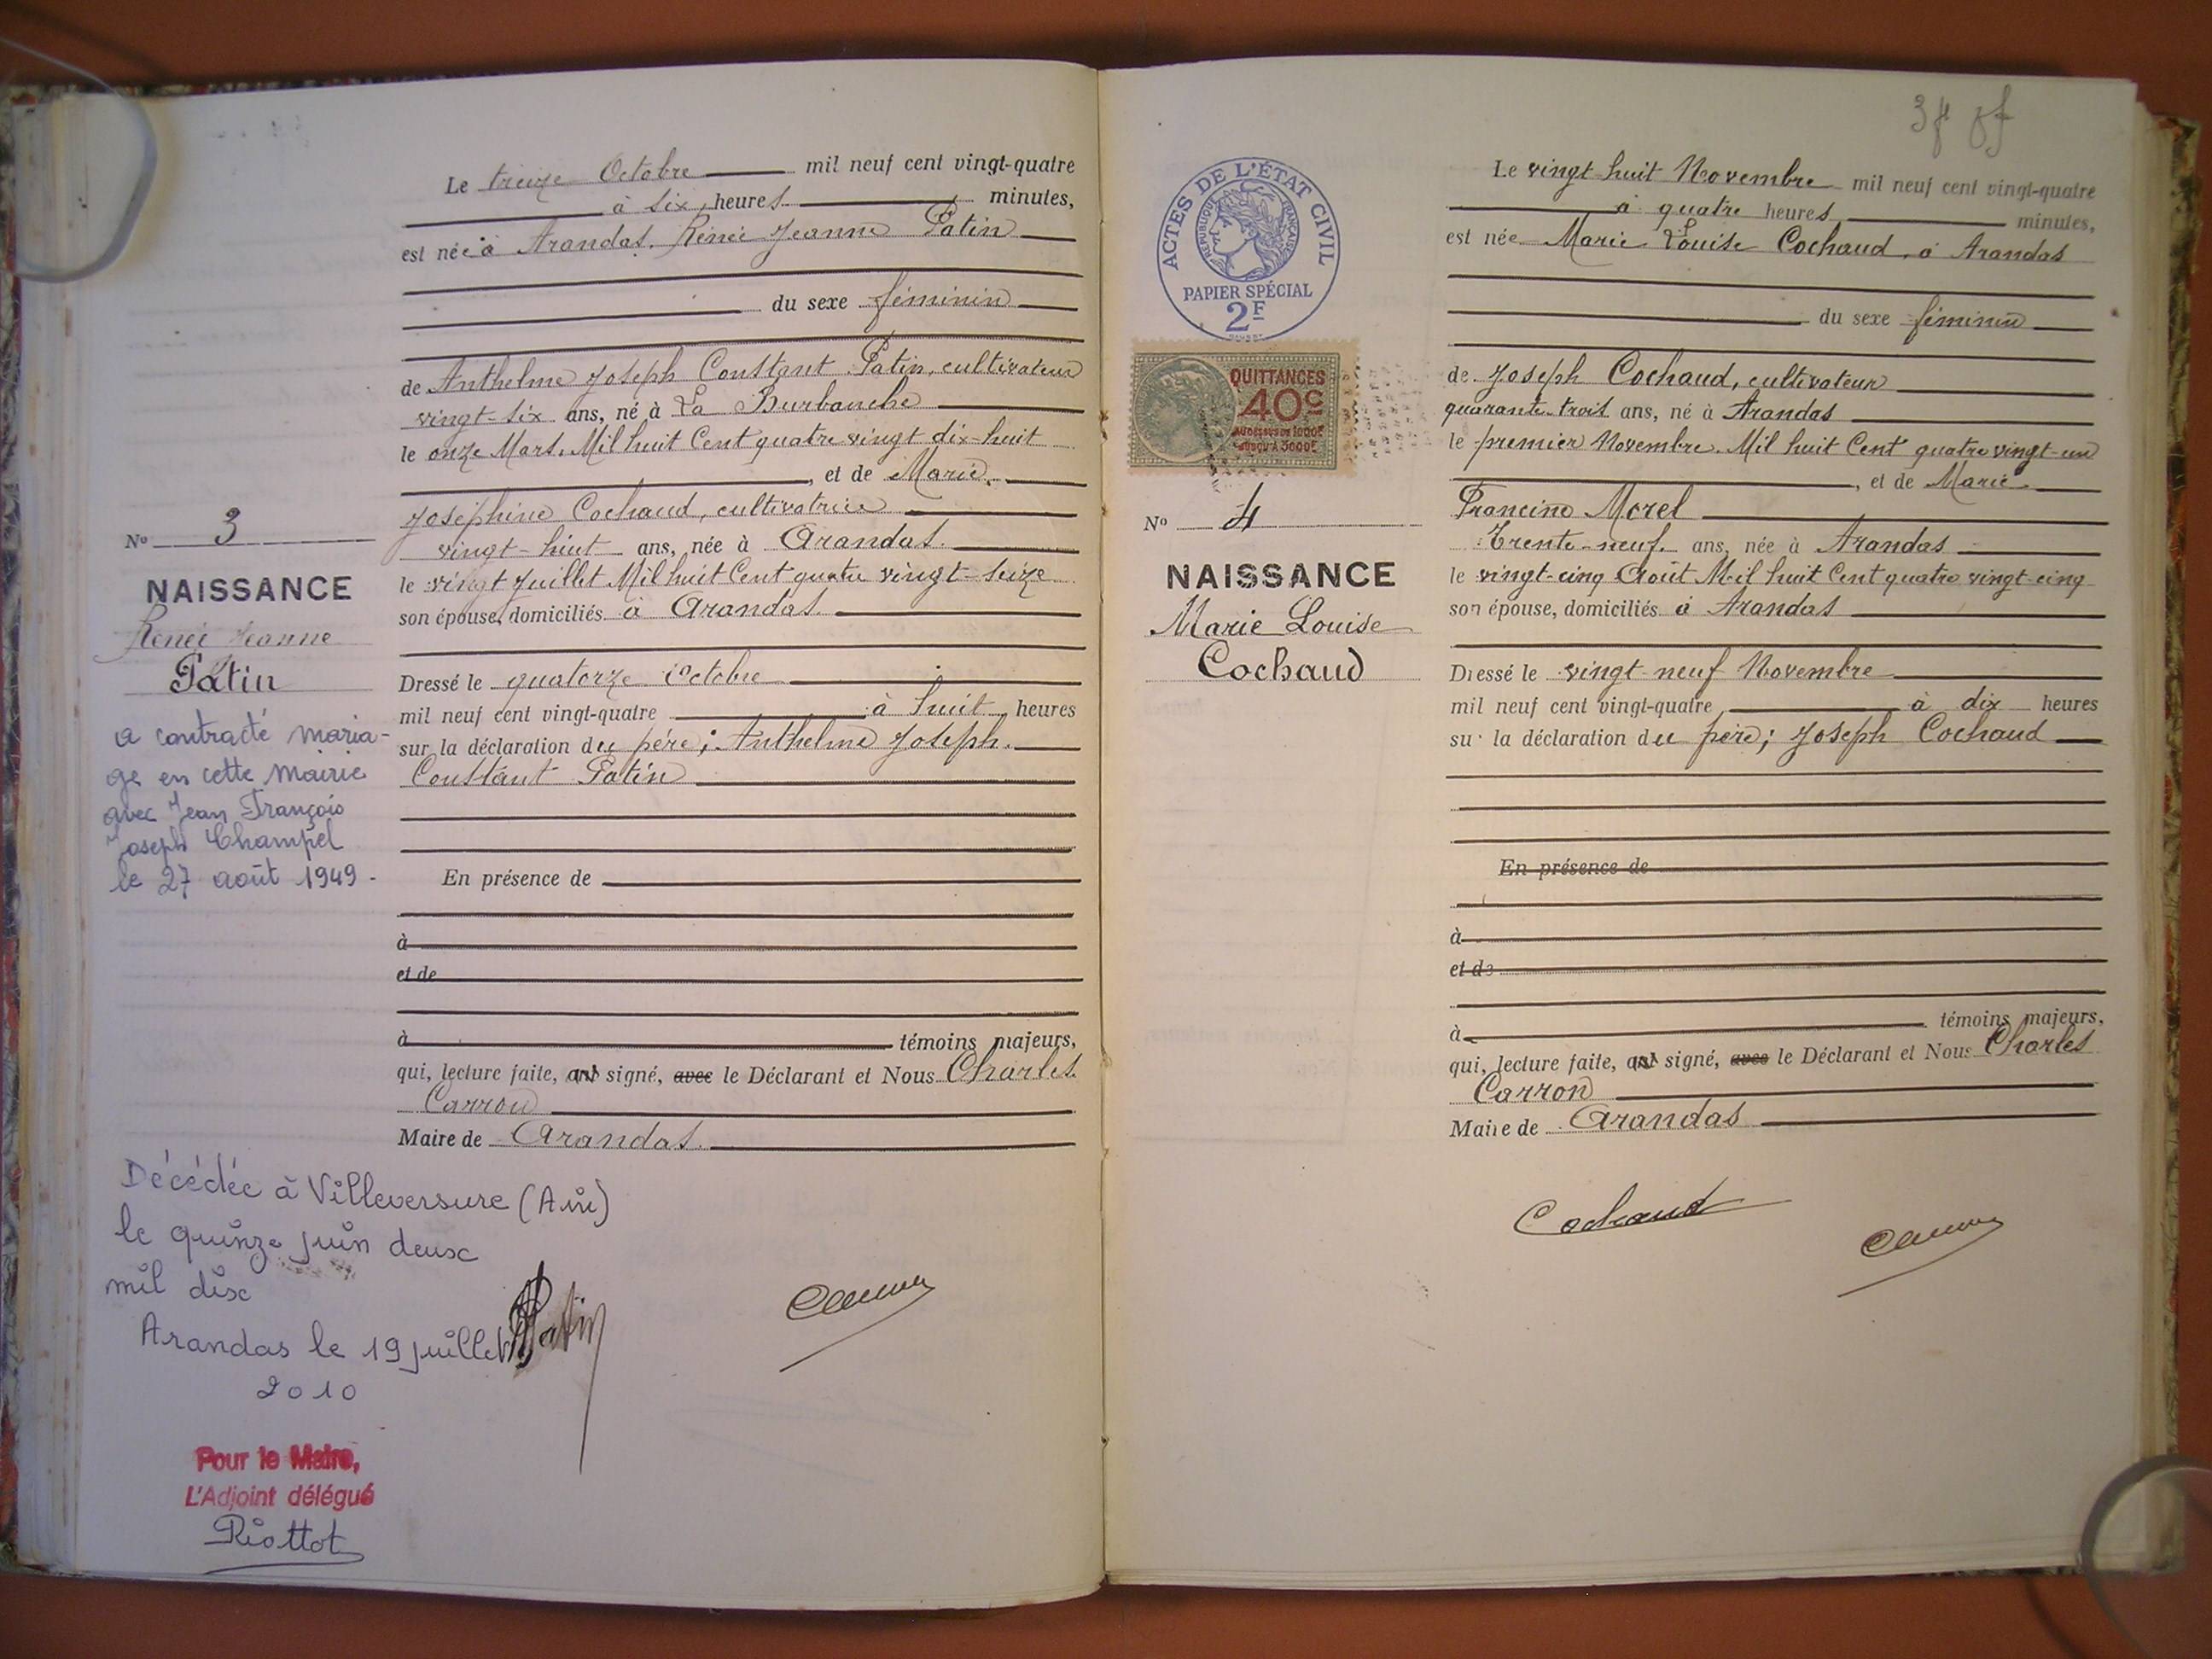 Le treize Octobre mil neuf cent vingt-quatre
à six heures minutes,
est née à Arandas. Renée Jeanne Patin
du sexe féminin
de Anthelme Joseph Constant Patin, cultivateur
vingt-six ans, né à La Burbanche
le onze Mars. Mil huit Cent quatre vingt dix-huit
, et de Marie.
Joséphine Cochaud, cultivatrice
vingt-huit ans, née à Arandas.
le vingt Juillet Mil huit Cent quatre vingt-seize
son épouse, domiciliés à Arandas
Dressé le quatorze Octobre
mil neuf cent vingt-quatre à huit heures
sur la déclaration du père; Anthelme Joseph.
Constant Patin
En présence de
à
et de
à témoins majeurs,
qui, lecture faite, ont signé, avec le Déclarant et Nous Charles
Carron
Maire de Arandas.
No 3
NAISSANCE
Renée Jeanne
Patin
a contracté maria-
ge en cette mairie
avec Jean François
Joseph Champel
le 27 août 1949.
Décédée à Villeversure (Ain)
le quinze juin deux
mil dix
Arandas le 19 juillet
2010
Patin
Pour le Maire,
L'Adjoint délégué
Riottot
ACTES DE L'ÉTAT CIVIL
RÉPUBLIQUE FRANÇAISE
PAPIER SPÉCIAL
2F
QUITTANCES
40c
AU DESSUS DE 1000F
JUSQU'À 3000F
No 4
NAISSANCE
Marie Louise
Cochaud
Le vingt huit Novembre mil neuf cent vingt-quatre
à quatre heures minutes,
est née Marie Louise Cochaud, à Arandas
du sexe féminin
de Joseph Cochaud, cultivateur
quarante-trois ans, né à Arandas
le premier Novembre. Mil huit Cent quatre vingt-un
, et de Marie
Francine Morel
Trente-neuf. ans, née à Arandas
le vingt-cinq Août Mil huit Cent quatre vingt-cinq
son épouse, domiciliés à Arandas
Dressé le vingt-neuf Novembre
mil neuf cent vingt-quatre à dix heures
sur la déclaration du père; Joseph Cochaud
En présence de
à
et de
à témoins majeurs,
qui, lecture faite, ont signé, avec le Déclarant et Nous Charles
Carron
Maire de Arandas
Cochaud